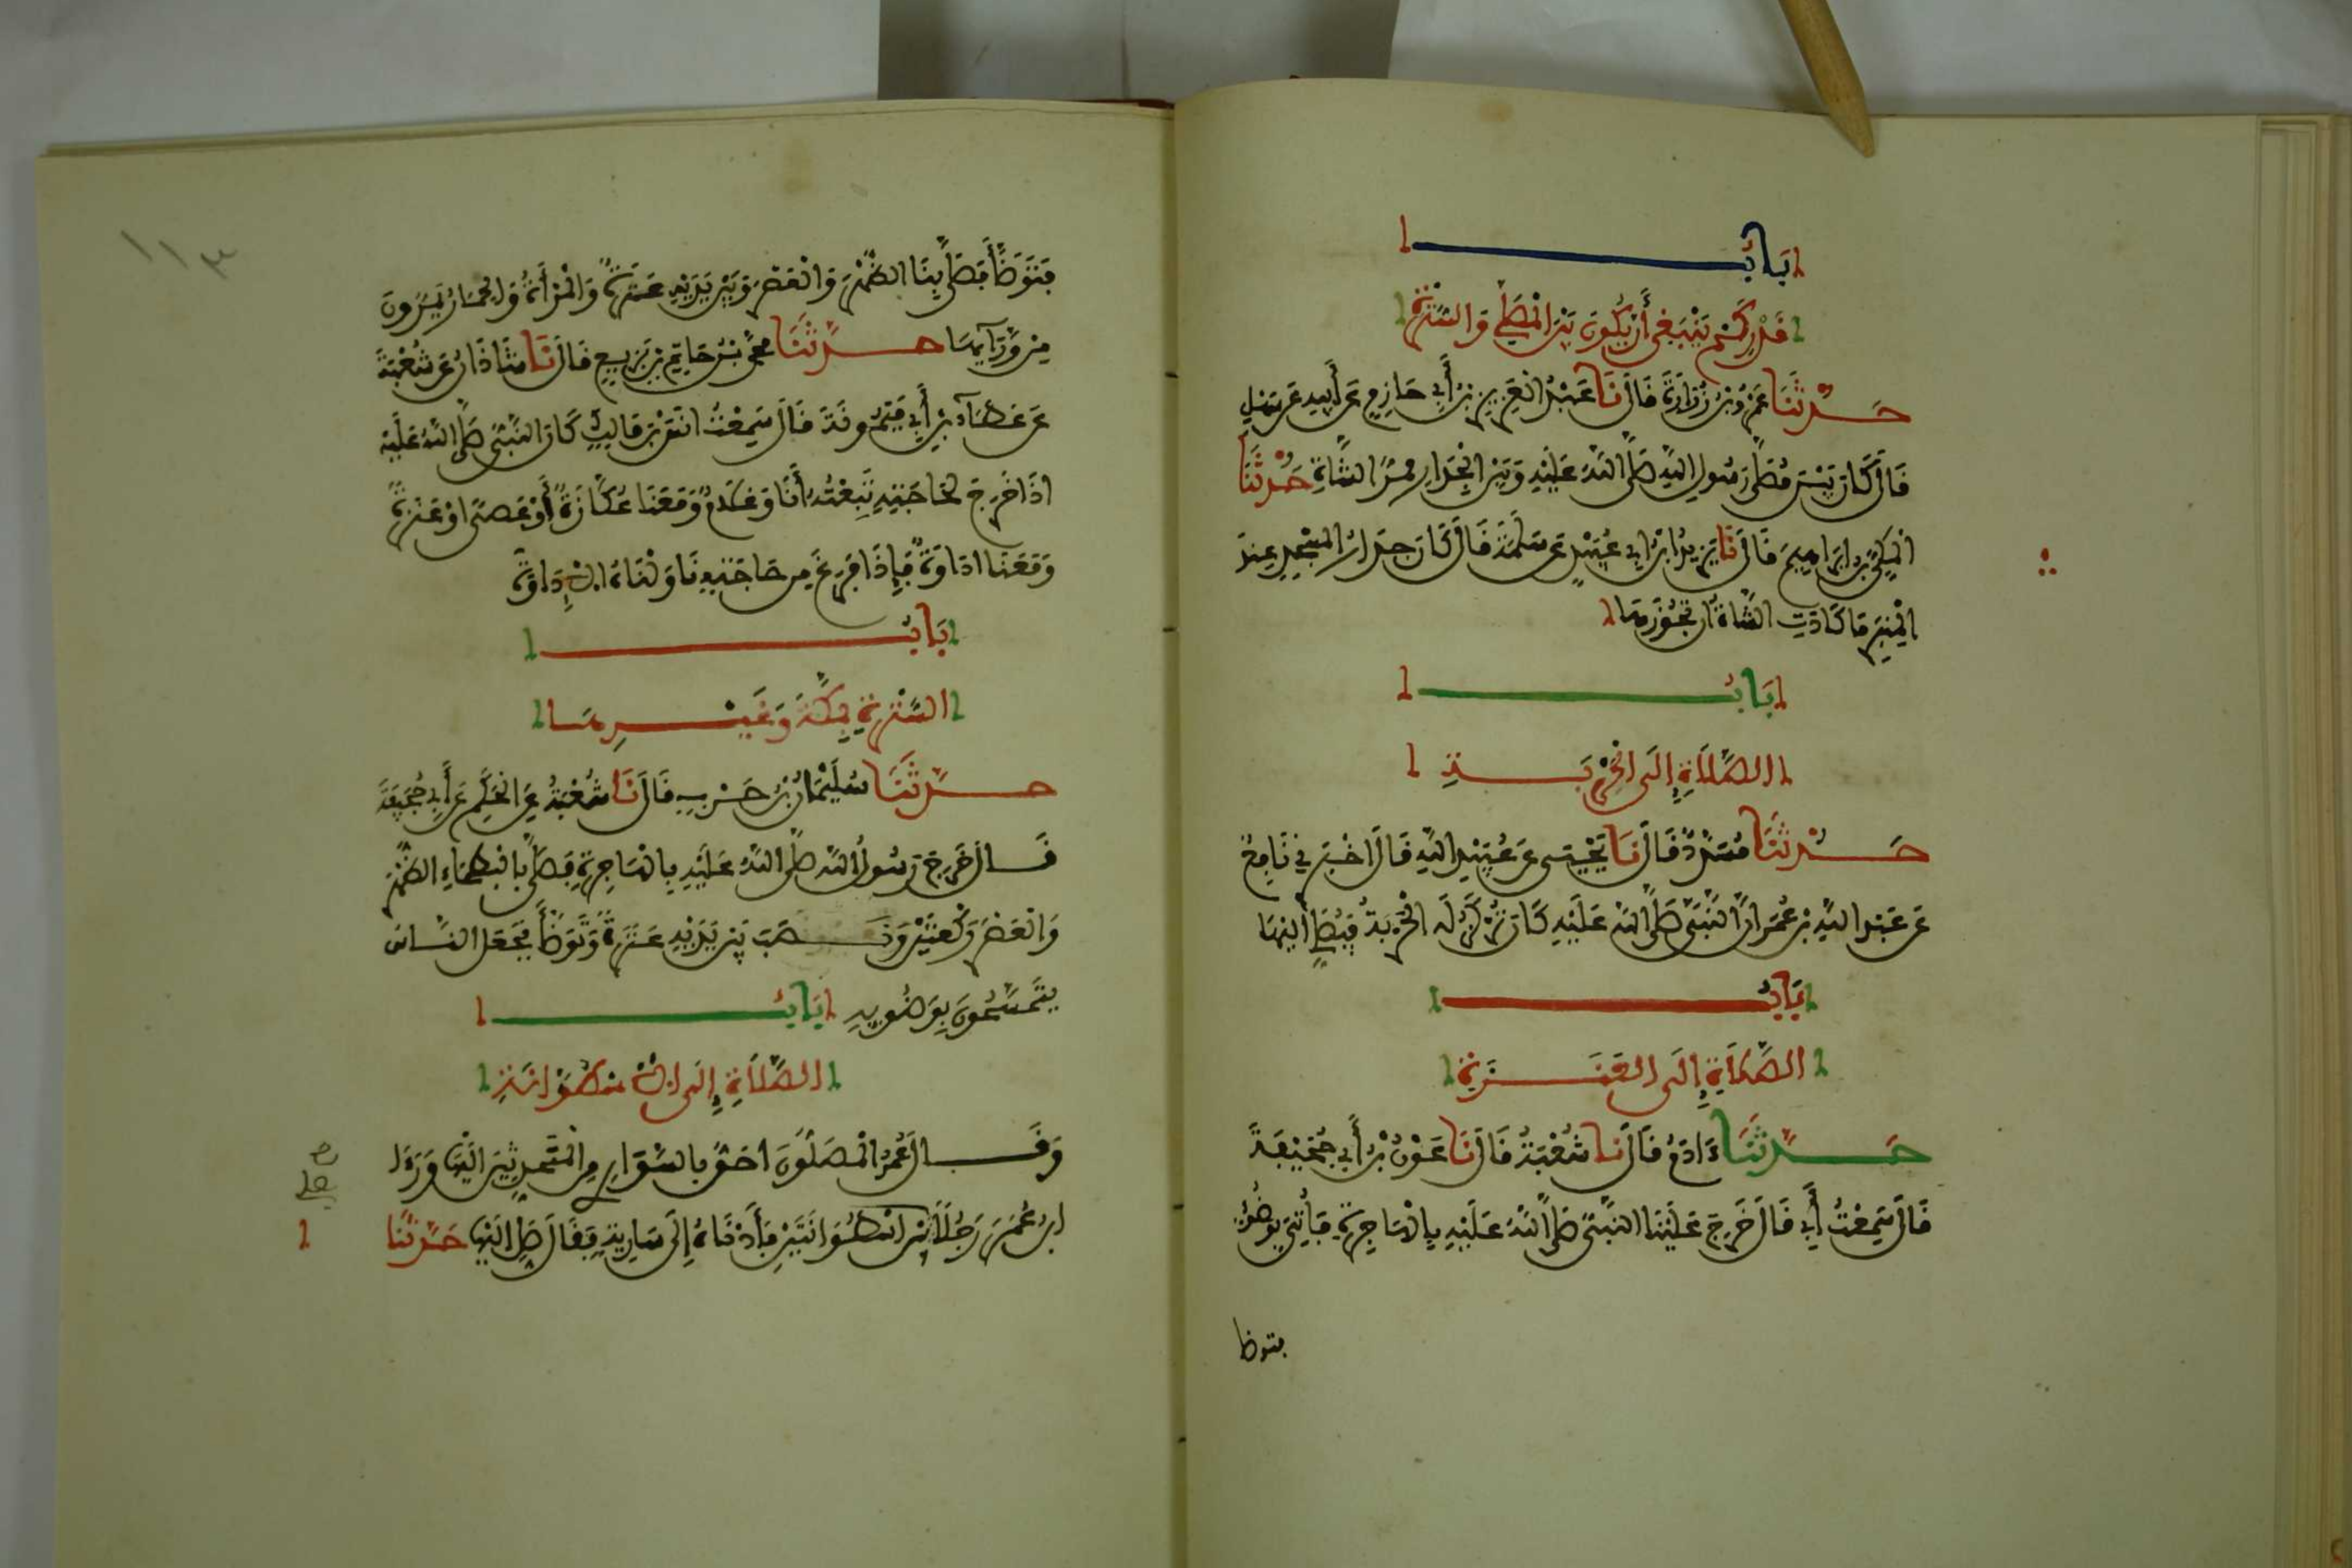 بَابُ
قَدْرِ كَمْ يَنْبَغِي أَنْ يَكُونَ بَيْنَ الْمُصَلِّي وَالسُّتْرَةِ
حَدَّثَنَا عَمْرُو بْنُ زُرَارَةَ قَالَ نَا عَبْدُ الْعَزِيزِ بْنُ أَبِي حَازِمٍ عَنْ أَبِيهِ عَنْ سَهْلٍ
قَالَ كَانَ بَيْنَ مُصَلَّى رَسُولِ اللهِ صَلَّى اللهُ عَلَيْهِ وَبَيْنَ الْجِدَارِ مَمَرُّ الشَّاةِ حَدَّثَنَا
الْمَكِّيُّ بْنُ إِبْرَاهِيمَ قَالَ نَا يَزِيدُ ابْنُ أَبِي عُبَيْدٍ عَنْ سَلَمَةَ قَالَ كَانَ جِدَارُ الْمَسْجِدِ عِنْدَ
الْمِنْبَرِ مَا كَادَتِ الشَّاةُ أَنْ تَجُوزَهَا
بَابُ
الصَّلَاةِ إِلَى الْحَرْبَةِ
حَدَّثَنَا مُسَدَّدٌ قَالَ نَا يَحْيَى عَنْ عُبَيْدِ اللهِ قَالَ أَخْبَرَنِي نَافِعٌ
عَنْ عَبْدِ اللهِ بْنِ عُمَرَ أَنَّ النَّبِيَّ صَلَّى اللهُ عَلَيْهِ كَانَ تُرْكَزُ لَهُ الْحَرْبَةُ فَيُصَلِّي إِلَيْهَا
بَابُ
الصَّلَاةِ إِلَى الْعَنَزَةِ
حَدَّثَنَا ءَادَمُ قَالَ نَا شُعْبَةُ قَالَ نَا عَوْنُ بْنُ أَبِي جُحَيْفَةَ
قَالَ سَمِعْتُ أَبِي قَالَ خَرَجَ عَلَيْنَا النَّبِيُّ صَلَّى اللهُ عَلَيْهِ بِالْهَاجِرَةِ فَأُتِيَ بِوَضُوءٍ
فتوضأ
١١٣
فَتَوَضَّأَ فَصَلَّى بِنَا الظُّهْرَ وَالْعَصْرَ وَبَيْنَ يَدَيْهِ عَنَزَةٌ وَالْمَرْأَةُ وَالْحِمَارُ يَمُرُّونَ
مِنْ وَرَائِهَا حَدَّثَنَا مُحَمَّدُ بْنُ حَاتِمِ بْنِ بَزِيعٍ قَالَ نَا شَاذَانُ عَنْ شُعْبَةَ
عَنْ عَطَاءِ بْنِ أَبِي مَيْمُونَةَ قَالَ سَمِعْتُ أَنَسَ بْنَ مَالِكٍ كَانَ النَّبِيُّ صَلَّى اللهُ عَلَيْهِ
إِذَا خَرَجَ لِحَاجَتِهِ تَبِعْتُهُ أَنَا وَغُلَامٌ وَمَعَنَا عُكَّازَةٌ أَوْ عَصًى أَوْ عَنَزَةٌ
وَمَعَنَا إِدَاوَةٌ فَإِذَا فَرَغَ مِنْ حَاجَتِهِ نَاوَلْنَاهُ الْإِدَاوَةَ
بَابُ
السُّتْرَةِ بِمَكَّةَ وَغَيْرِهَا
حَدَّثَنَا سُلَيْمَانُ بْنُ حَرْبٍ قَالَ نَا شُعْبَةُ عَنِ الْحَكَمِ عَنْ أَبِي جُحَيْفَةَ
قَالَ خَرَجَ رَسُولُ اللهِ صَلَّى اللهُ عَلَيْهِ بِالْهَاجِرَةِ فَصَلَّى بِالْبَطْحَاءِ الظُّهْرَ
وَالْعَصْرَ رَكْعَتَيْنِ وَنَصَبَ بَيْنَ يَدَيْهِ عَنَزَةً وَتَوَضَّأَ فَجَعَلَ النَّاسُ
يَتَمَسَّحُونَ بِوَضُوئِهِ بَابُ
الصَّلَاةِ إِلَى الْأُسْطُوَانَةِ
وَقَالَ عُمَرُ الْمُصَلُّونَ أَحَقُّ بِالسَّوَارِي مِنَ الْمُتَحَدِّثِينَ إِلَيْهَا وَرَأَى
ابْنُ عُمَرَ رَجُلًا بَيْنَ أُسْطُوَانَتَيْنِ فَأَدْنَاهُ إِلَى سَارِيَةٍ فَقَالَ صَلِّ إِلَيْهَا حَدَّثَنَا